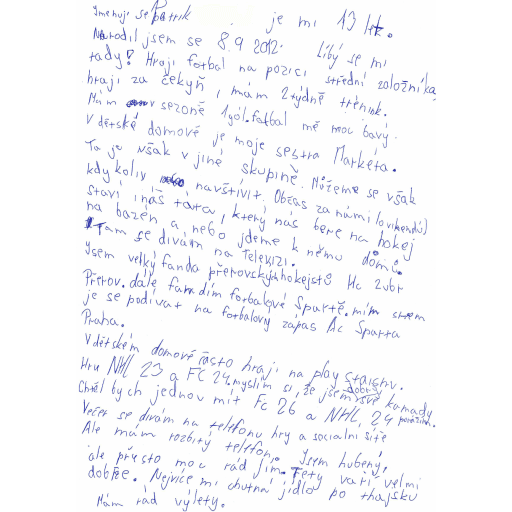 Jmenuji se Patrik je mi 13 let.
Narodil jsem se 8.9 2012. Líbý se mi
tady! Hraji fotbal na pozici střední založníka
hraji za čekyň, mám 2 týdně trénink.
Mám v sezoně 1 gól. fotbal mě moc bavý.
V dětské domově je moje sestra Markéta.
Ta je však v jiné skupině. Můžeme se však
kdykoliv navštívit. Občas za námi (o víkendů)
staví náš táta, který nás bere na hokej
na bazén a nebo jdeme k němu domů.
Tam se dívám na Televizi.
Jsem velký fanda přerovských hokejstů Hc Zubr
Přerov. dále fandím fotbalové Spartě. mím snem
je se podívat na fotbalový zápas Ac Sparta
Praha.
V dětském domově často hraji na play staiony.
Hru NHL 23 a FC 24, myslím si, že jsem dobrý své kamady
Chtěl bych jednou mít Fc 26 a NHL 24
Večer se dívám na telefonu hry a socialní sítě
Ale mám rozbitý telefon. Jsem hubený,
ale přesto moc rád jím. Tety vaří velmi
dobře. Nejvíce mi chutná jídlo po thajsku
Mám rád výlety.